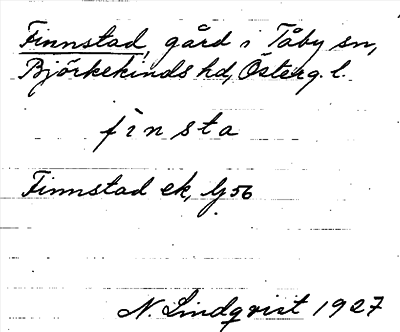 Finnstad, gård i Tåby sn,
Björkekinds hd, Österg. l.
finsta
Finnstad ek, Gj 56
N. Lindqvist 1927